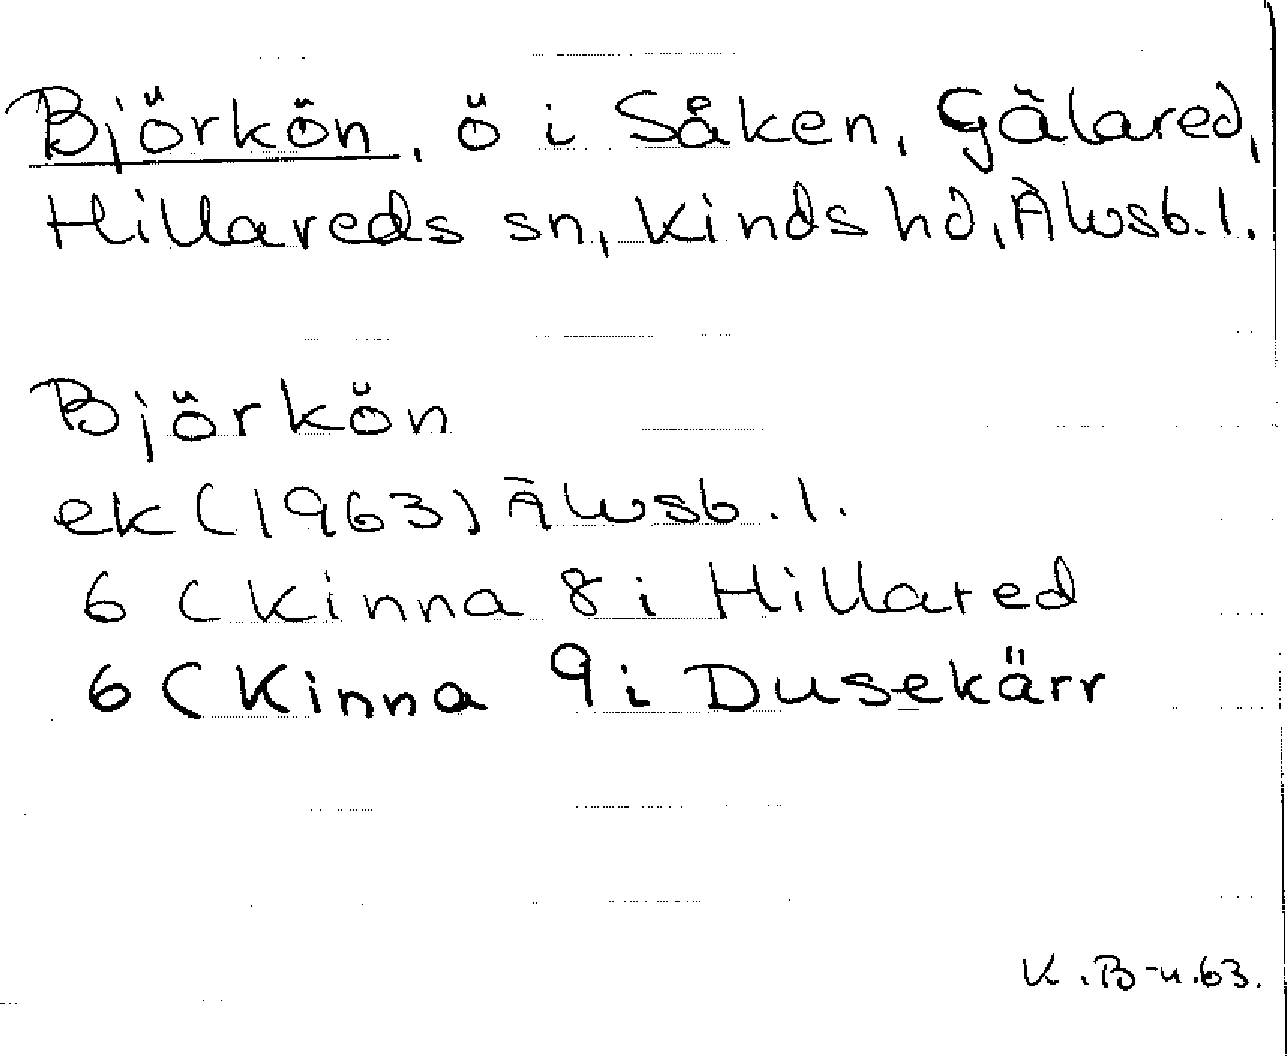 Björkön, ö i Såken, Gälared,
Hillareds sn, Kinds hd, Älvsb. l.
Björkön
ek (1963) Älvsb. l.
6 (Kinna 8 i Hillared
6 (Kinna 9 i Dusekärr
K. B-n. 63.